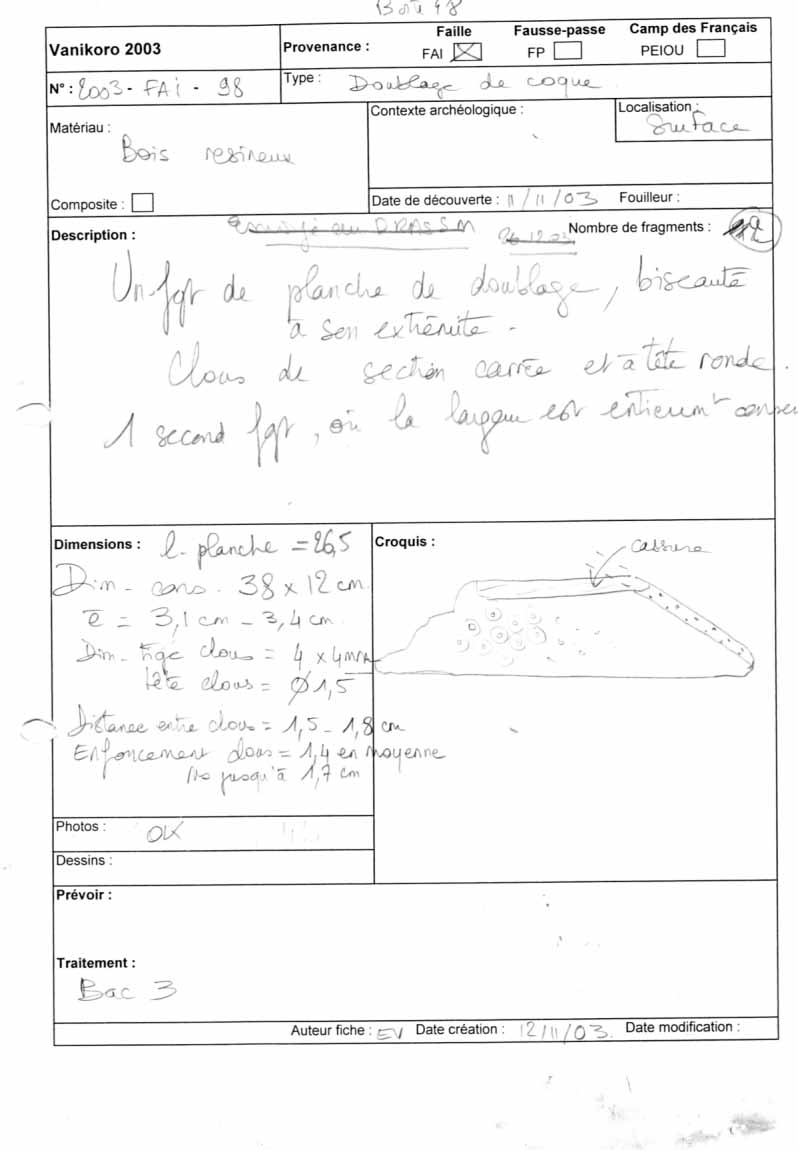 Boîte 48
Vanikoro 2003
Provenance :
Faille
FAI
Fausse-passe
FP
Camp des Français
PEIOU
N° : 2003 - FAI - 98
Type : Doublage de coque
Matériau :
Bois résineux
Composite :
Contexte archéologique :
Localisation :
Surface
Date de découverte : 11/11/03 Fouilleur :
Description :
Envoyé au DRASSM 26.12.03
Nombre de fragments : 2
Un fgt de planche de doublage, biseauté
à son extrémité.
Clous de section carrée et à tête ronde.
1 second fgt, où la largeur est entièrem^t conser
Dimensions : l. planche = 26,5
Dim. cons. 38 x 12 cm
e = 3,1 cm - 3,4 cm
Dim. tige clous = 4 x 4 mm
tête clous = Ø 1,5
Distance entre clous = 1,5 - 1,8 cm
Enfoncement clous = 1,4 en moyenne
jusqu'à 1,7 cm
Croquis :
cassure
Photos : OK
Dessins :
Prévoir :
Traitement :
Bac 3
Auteur fiche : EV Date création : 12/11/03. Date modification :